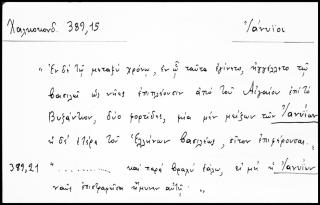 Χαλκοκονδ. 389,15 Ἰανύϊοι
"Ἐν δὲ τῷ μεταξὺ χρόνῳ, ἐν ᾧ ταῦτα ἐγένετο, ἠγγέλλετο τῷ
βασιλεῖ ὡς νῆες ἐπιπλέουσιν ἀπὸ τοῦ Αἰγαίου ἐπὶ τὸ
Βυζάντιον, δύο φορτίδες, μία μὲν μείζων τῶν Ἰανυΐων
ἡ δ' ἑτέρα τοῦ Ἑλλήνων βασιλέως, σῖτον ἐπιφέρουσαι."
389,21 " .......... καὶ παρὰ βραχὺ ἑάλω, εἰ μὴ ἡ Ἰανυΐων
ναῦς ἐπιστραφεῖσα ἤμυνεν αὐτῇ. „